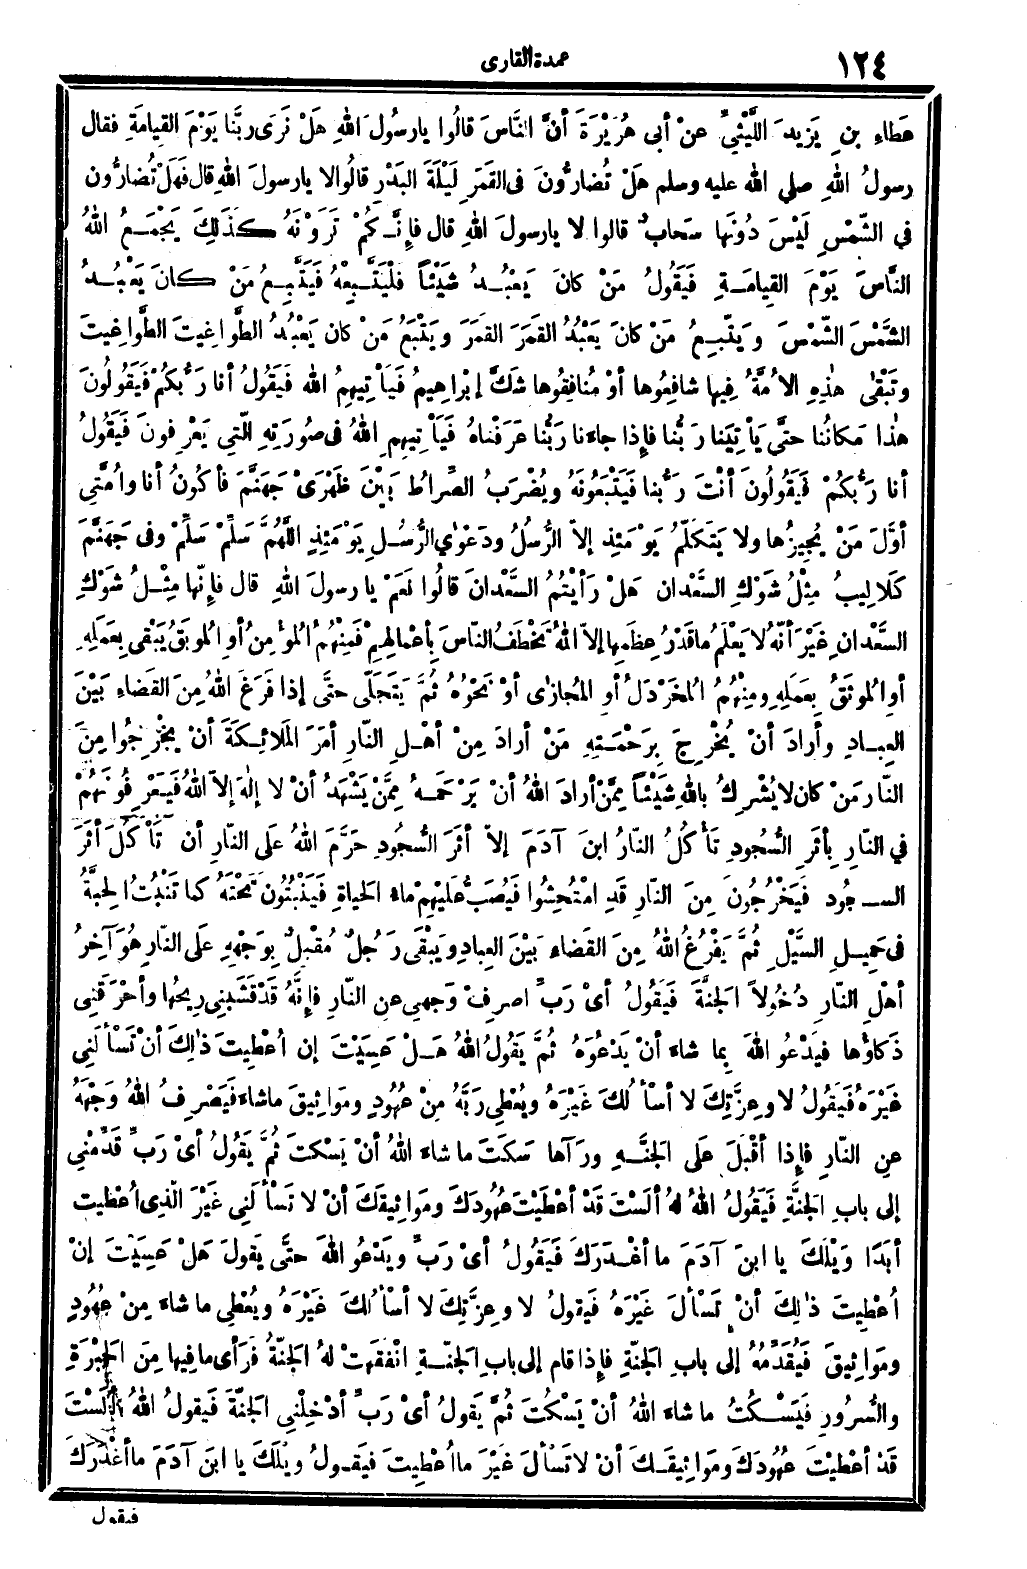 ١٢٤
عمدة القارى
عَطَاءِ بنِ يَزِيدَ اللَّيْثِيِّ عنْ أبى هُرَيْرَةَ أنَّ النَّاسَ قالُوا يارسُولَ اللهِ هَلْ نَرَى ربَّنا يَوْمَ القِيامَةِ فقال
رسولُ اللهِ صلى الله عليه وسلم هَلْ تُضارُّونَ فى القَمَرِ لَيْلَةَ البَدْرِ قالُوا لا يارسولَ اللهِ قال فَهَلْ تُضارُّون
في الشَّمْسِ لَيْسَ دُونَها سَحابٌ قالوا لا يارسولَ اللهِ قال فإنَّكُمْ تَرَوْنَهُ كذَلِكَ يَجْمَعُ اللهُ
النَّاسَ يَوْمَ القِيامَةِ فَيَقُولُ مَنْ كانَ يَعْبُدُ شَيْئاً فَلْيَتَّبِعْهُ فَيَتَّبِعُ مَنْ كانَ يَعْبُدُ
الشَّمْسَ الشَّمْسَ ويَتّبِعُ مَنْ كانَ يَعْبُدُ القَمَرَ القمَرَ ويَتْبَعُ مَنْ كان يَعْبُدُ الطَّواغِيتَ الطَّواغِيتَ
وتَبْقَى هٰذِهِ الأُمَّةُ فِيها شافِعُوها أوْ مُنافِقُوها شَكَّ إبْراهِيمُ فَيَأْتِيهِمُ الله فَيَقُولُ أنا رَبُّكُمْ فَيَقُولُونَ
هٰذا مَكانُنا حتَّى يَأْتِيَنا رَبُّنا فإذا جاءَنا رَبُّنا عَرَفْناهُ فَيَأْتِيهِمِ اللهُ فى صُورَتِهِ الّتِي يَعْرِفونَ فَيَقُولُ
أنا رَبُّكُمْ فَيَقُولُونَ أنْتَ رَبُّنا فَيَتْبَعُونَهُ ويُضْرَبُ الصِّراطُ بَيْنَ ظَهْرَىْ جَهَنَّمَ فأكُونُ أنا وأُمَّتِي
أوَّلَ مَنْ يُجِيزُها ولا يَتَكَلّمُ يوْمَئِذٍ إلاّ الرُّسُلُ ودَعْوٰي الرُّسُلِ يَوْمَئِذٍ اللَّهُمَّ سَلِّمْ سَلِّمْ وفى جَهَنَّمَ
كَلالِيبُ مِثْلُ شَوْكِ السَّعْدان هَلْ رَأيْتُمُ السَّعْدانَ قالُوا نَعَمْ يارسولَ اللهِ قال فإنّها مِثْلُ شَوْكِ
السَّعْدانِ غَيْرَ أنّهُ لا يَعْلَمُ ماقَدْرُ عِظَمِها إلاّ اللهُ تَخْطَفُ النّاسَ بِأعْمالِهِمْ فَمِنْهُمُ المُؤْمِنُ أوِ المُوبَقُ يَبْقَى بِعَمَلِهِ
أوِ المُوثَقُ بِعَمَلِهِ ومِنْهُمُ المُخَرْدَلُ أوِ المُجازٰى أوْ نَحْوُهُ ثُمَّ يَتَجَلّى حتَّى إذا فَرَغَ اللهُ مِنَ القَضاءِ بَيْنَ
العِبادِ وأرَادَ أنْ يُخْرِجَ بِرَحْمَتِهِ مَنْ أرادَ مِنْ أهْلِ النّارِ أمَرَ المَلائِكَةَ أنْ يخْرِجُوا مِنَ
النّارِ مَنْ كان لا يُشْرِكُ باللهِ شَيْئاً مِمَّنْ أرادَ اللهُ أنْ يَرْحَمَهُ مِمَّنْ يَشْهَدُ أنْ لا إلٰهَ إلاّ اللهُ فَيَعْرِفُونَهُمْ
في النّارِ بِأثَرِ السُّجُودِ تَأْكُلُ النّارُ ابنَ آدَمَ إلاّ أثَرَ السُّجُودِ حَرَّمَ اللهُ عَلَى النّارِ أن تَأْكُلَ أثَرَ
السجُود فَيَخْرُجُونَ مِنَ النّارِ قَدِ امْتُحِشُوا فَيُصَبُّ عَلَيْهِمْ ماءُ الحَياةِ فَيَنْبُتُونَ تَحْتَهُ كما تَنْبُتُ الحِبَّةُ
فى حَمِيلِ السَّيْلِ ثُمَّ يَفْرُغُ اللهُ مِنَ القَضاءِ بَيْنَ العِبادِ ويَبْقَى رَجُلٌ مُقْبِلٌ بِوَجْهِهِ عَلَى النّارِ هُوَ آخِرُ
أهْلِ النّارِ دُخُولاً الجَنَّةَ فَيَقُولُ أىْ رَبِّ اصرِفْ وَجهِي عنِ النّارِ فإنَّهُ قَدْ قَشَبَنِي رِيحُها وأحْرَقَنِي
ذَكاؤُها فيَدْعُو اللهَ بِما شاءَ أنْ يَدْعُوَهُ ثُمَّ يَقُولُ اللهُ هَلْ عَسَيْتَ إن أُعْطِيتَ ذٰلِكَ أنْ تَسْألَنِي
غَيْرَهُ فَيَقُولُ لا وعِزَّتِكَ لا أسْألُكَ غَيْرَهُ ويُعْطِي رَبَّهُ مِنْ عُهُودٍ ومَواثِيقَ ماشاءَ فَيَصْرِفُ اللهُ وَجْهَهُ
عنِ النّارِ فإذا أقْبَلَ عَلَى الجَنَّةِ ورَآها سَكَتَ ماشاءَ اللهُ أنْ يَسْكتَ ثُمَّ يَقُولُ أىْ رَبِّ قَدِّمْنِي
إلى بابِ الجَنَّةِ فَيَقُولُ اللهُ لهُ ألَسْتَ قَدْ أعْطَيْتَ عُهُودَكَ ومَواثِيقَكَ أنْ لا تَسْألَنِي غَيْرَ الَّذِى أُعْطِيت
أبَدًا وَيْلَكَ يا ابنَ آدَمَ ماأغْدَرَكَ فَيَقُولُ أىْ رَبِّ ويَدْعُو اللهَ حتَّى يَقُولَ هَلْ عَسَيْتَ إنْ
أُعْطِيتَ ذٰلِكَ أنْ تَسْألَ غَيْرَهُ فَيَقولُ لا وعِزَّتِكَ لا أسْألُكَ غَيْرَهُ ويُعْطِي ماشاءَ مِنْ عُهُودٍ
ومَواثِيقَ فَيُقَدِّمُهُ إلى بابِ الجَنّةِ فإذا قام إلى بابِ الجَنّةِ انْفَهَقَتْ لهُ الجَنّةُ فَرَأى مافِيها مِنَ الحَبْرَةِ
والسُّرُورِ فَيَسْكُتُ ماشاءَ اللهُ أنْ يَسْكُتَ ثُمَّ يَقولُ أىْ رَبِّ أدْخِلْنِي الجَنّةَ فَيقولُ اللهُ ألَسْتَ
قَدْ أعْطَيْتَ عُهُودَكَ ومَوَاثِيقَكَ أنْ لاتَسْألَ غَيْرَ ماأُعْطِيتَ فيَقولُ ويْلَكَ يا ابنَ آدَمَ ماأغْدَرَكَ
فيقول